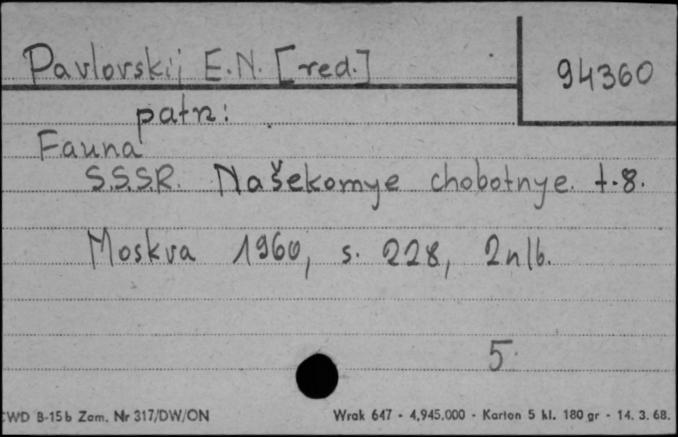 Pavlovskij E.N. [red.]
94360
patrz:
Fauna
S.S.S.R. Našekomye chobotnye. t.8.
Moskva 1960, s. 228, 2nlb.
5.
CWD B-15b Zam. Nr 317/DW/ON Wrak 647 - 4,945.000 - Karton 5 kl. 180 gr - 14. 3. 68.